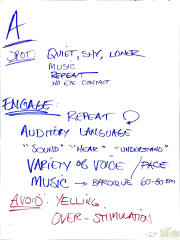 A
SPOT: QUIET, SHY, LONER
MUSIC
REPEAT
NO EYE CONTACT
ENGAGE:
REPEAT
AUDITORY LANGUAGE
"SOUND" "HEAR" "UNDERSTAND"
VARIETY OF VOICE / PACE
MUSIC → BAROQUE 60-80 BPM
AVOID: YELLING
OVER-STIMULATION